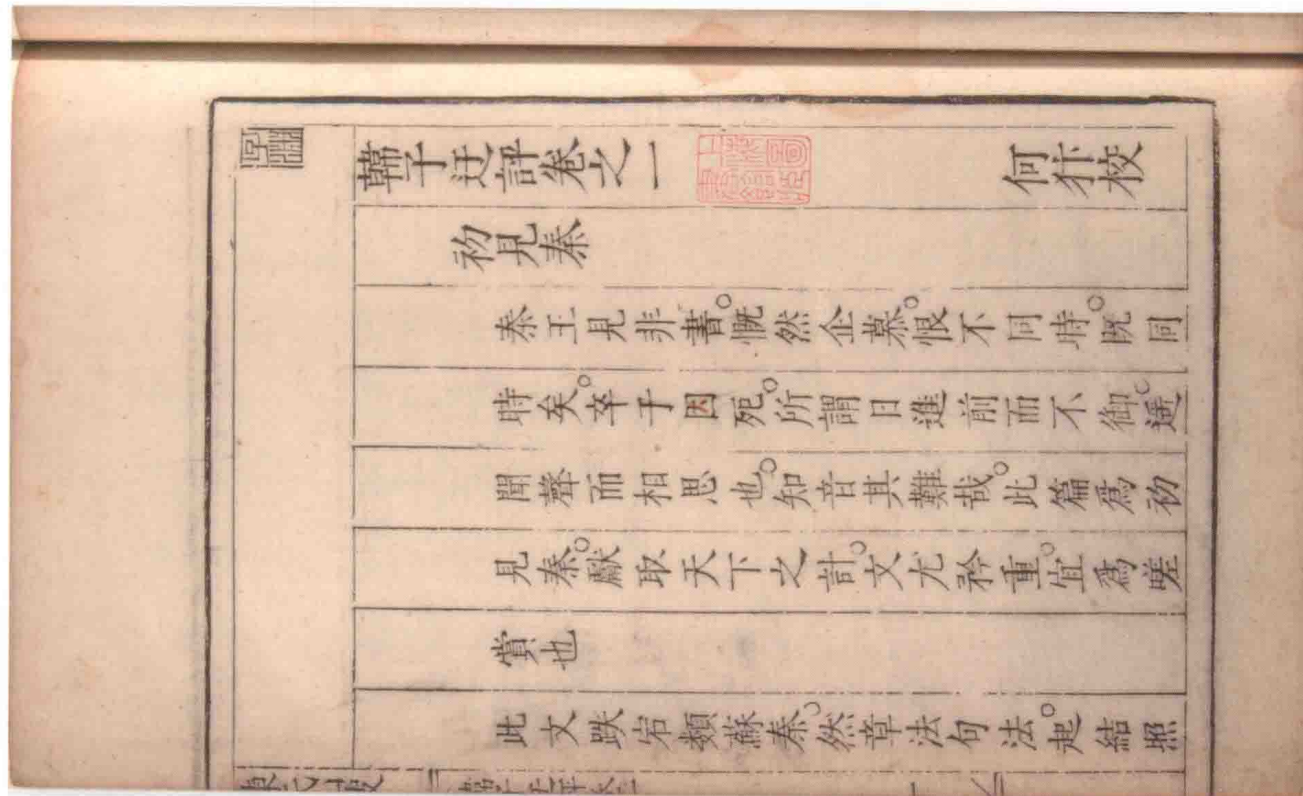 韓子迂評卷之一 何犿校
初見秦
秦王見非書慨然企慕恨不同時既同
時矣卒于囚死所謂日進前而不御遥
聞聲而相思也知音其難哉此篇爲初
見秦獻取天下之計文尤矜重宜爲嗟
賞也
此文跌宕類蘇秦然章法句法起結照